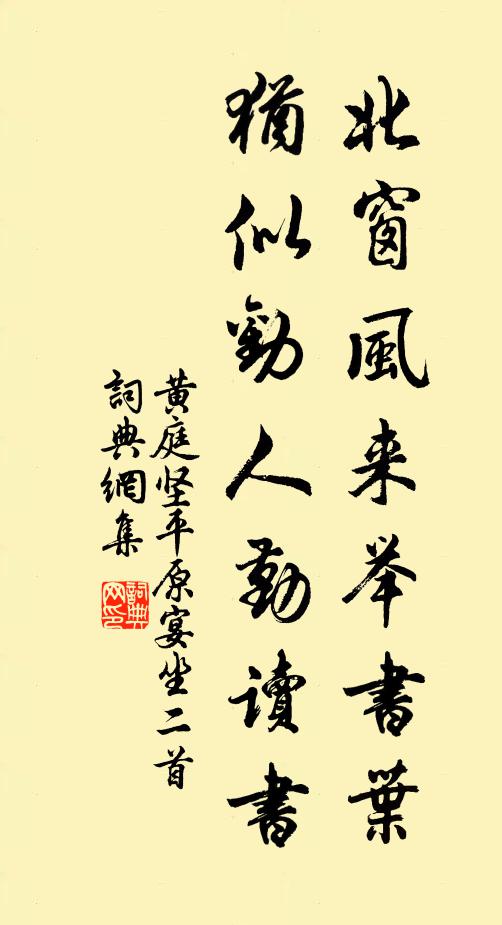 北窗風来举書葉
猶似勸人勤讀書
黄庭坚平原宴坐二首
詞典網集
詞典网印